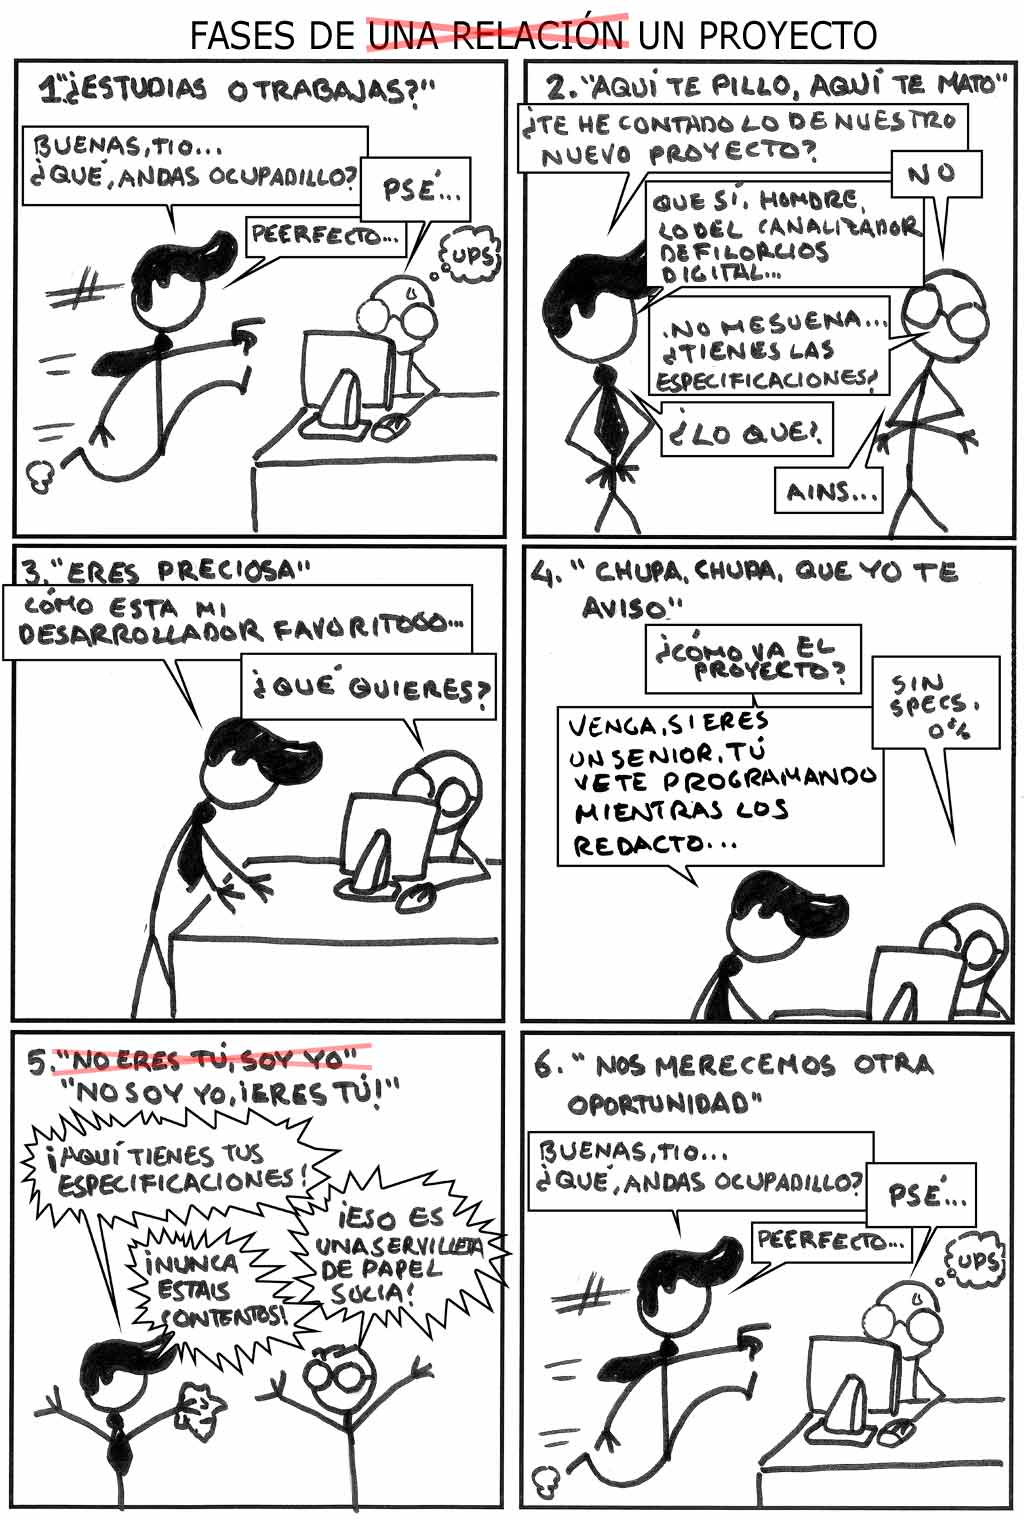 FASES DE UNA RELACIÓN UN PROYECTO
1."¿ESTUDIAS O TRABAJAS?"
BUENAS, TIO...
¿QUÉ, ANDAS OCUPADILLO?
PSÉ...
PEERFECTO...
UPS
2. "AQUÍ TE PILLO, AQUÍ TE MATO"
¿TE HE CONTADO LO DE NUESTRO
NUEVO PROYECTO?
NO
QUE SÍ, HOMBRE,
LO DEL CANALIZADOR
DE FILORCIOS
DIGITAL...
NO ME SUENA...
¿TIENES LAS
ESPECIFICACIONES?
¿LO QUE?
AINS...
3. "ERES PRECIOSA"
CÓMO ESTA MI
DESARROLLADOR FAVORITOOO...
¿QUÉ QUIERES?
4. "CHUPA, CHUPA, QUE YO TE
AVISO"
¿CÓMO VA EL
PROYECTO?
SIN
SPECS,
0%
VENGA, SI ERES
UN SENIOR, TÚ
VETE PROGRAMANDO
MIENTRAS LOS
REDACTO...
5. "NO ERES TÚ, SOY YO"
"NO SOY YO, ¡ERES TÚ!"
¡AQUÍ TIENES TUS
ESPECIFICACIONES!
¡ESO ES
UNA SERVILLETA
DE PAPEL
SUCIA!
¡NUNCA
ESTAIS
CONTENTOS!
6. "NOS MERECEMOS OTRA
OPORTUNIDAD"
BUENAS, TIO...
¿QUÉ, ANDAS OCUPADILLO?
PSÉ...
PEERFECTO...
UPS